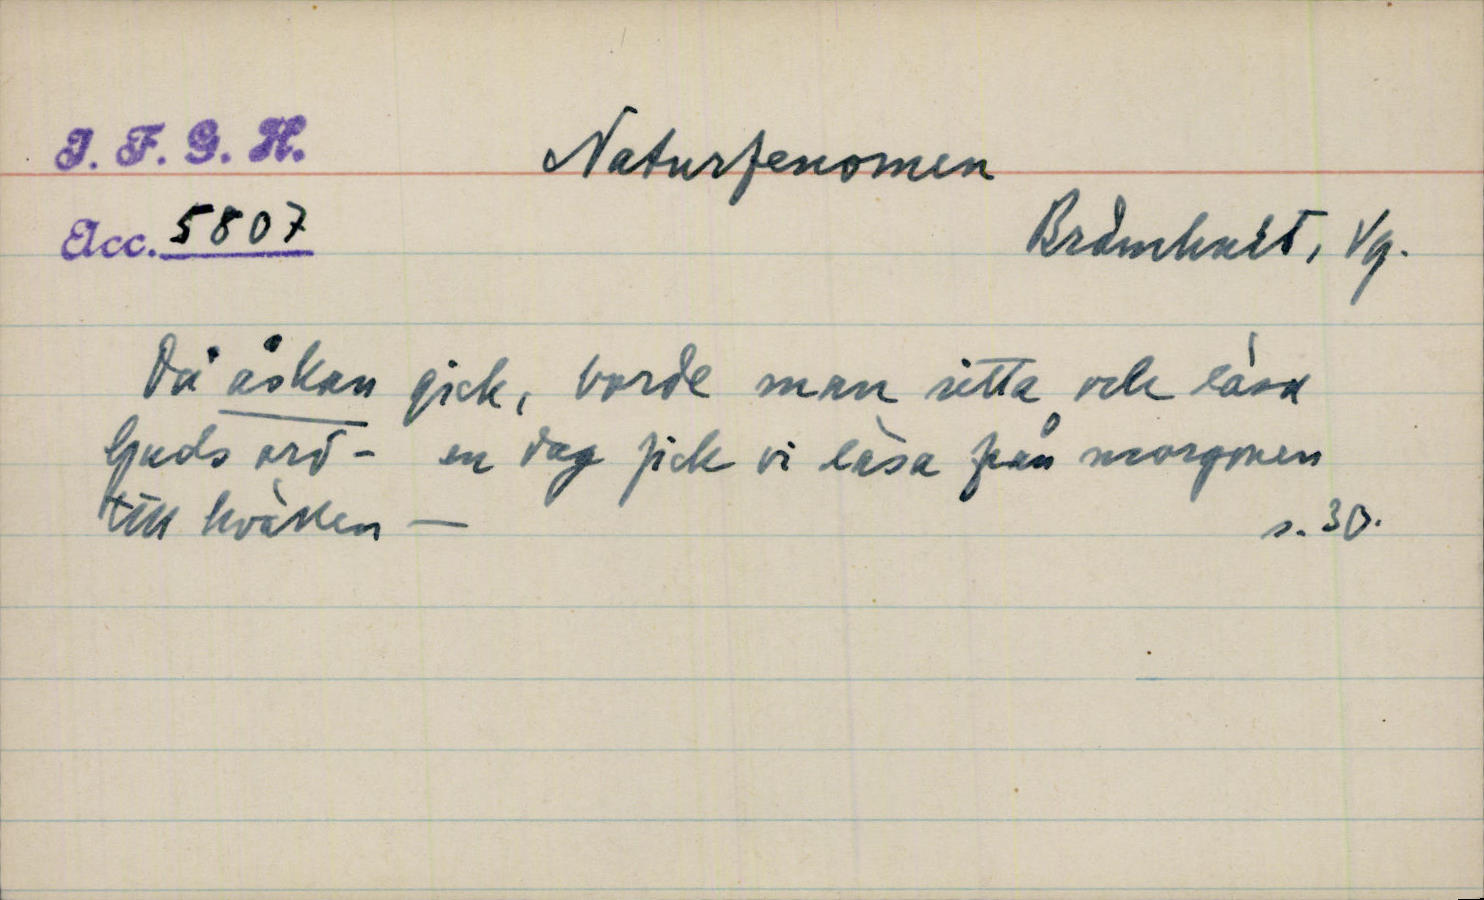 I. F. G. H.
Naturfenomen
Acc. 5807
Brämhult, Vg.
Då åskan gick, borde man sitta och läsa
Guds ord - en dag fick vi läsa från morgonen
till kvällen —
s. 30.